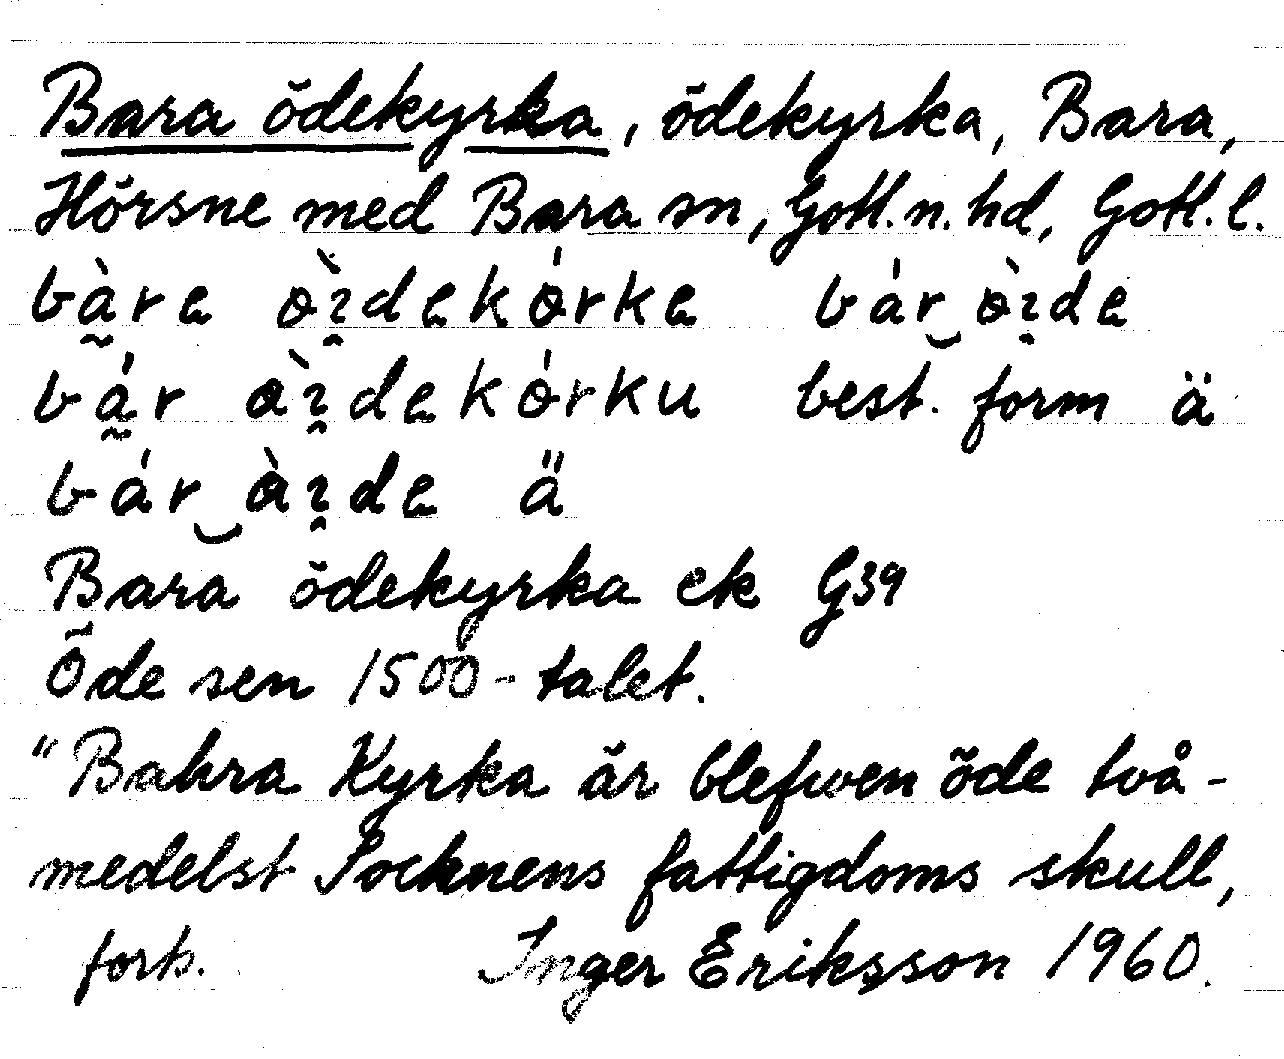 Bara ödekyrka, ödekyrka, Bara,
Hörsne med Bara sn, Gotl. n. hd, Gotl. l.
best. form ä
ä
Bara ödekyrka ek G39
Öde sen 1500-talet.
"Bahra Kyrka är blefwen öde två-
medelst Socknens fattigdoms skull,
forts. Inger Eriksson 1960.